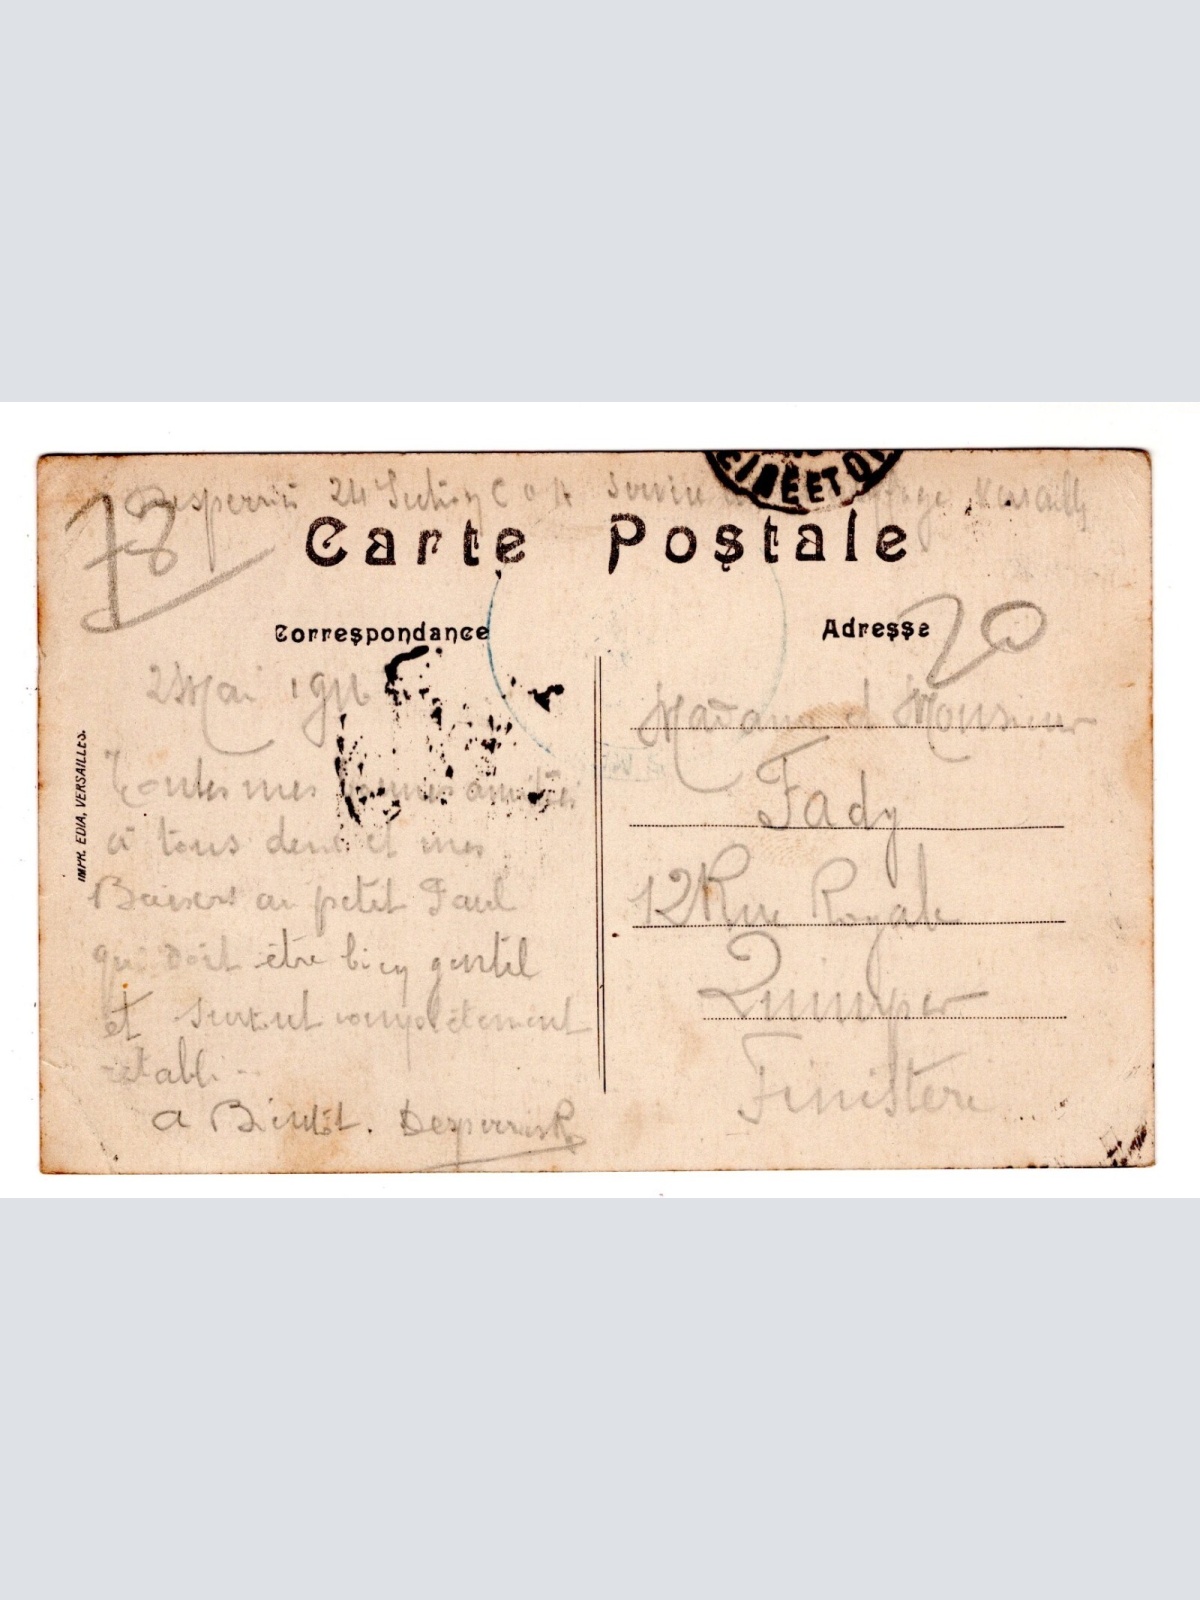 Desperrin 24 Section C O A Service Versailles
SEINE ET O
78
Carte Postale
Correspondance
Adresse
20
2 Mai 1916
Toutes mes bonnes amitiés
à tous deux et mes
Baisers au petit Paul
qui doit être bien gentil
et surtout complètement
rétabli
a Bientôt. Desperrin R
Madame et Monsieur
Fady
12 Rue Royale
Quimper
Finistère
IMPR. EDIA, VERSAILLES.